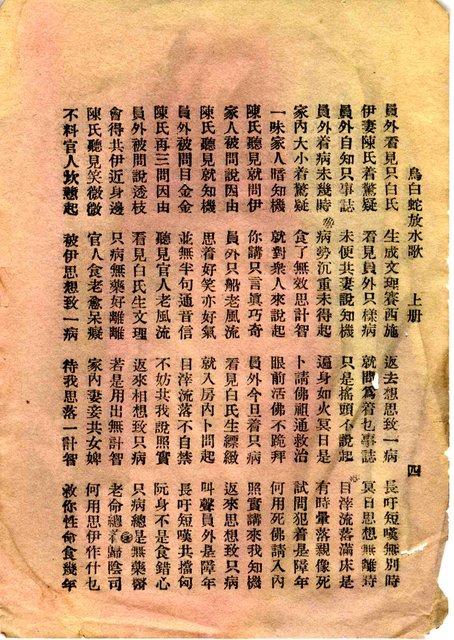 烏白蛇放水歌 上册 四
員外看見只白氏 生成文理賽西施 返去想思致一病 長吁短嘆無別時
伊妻陳氏着驚疑 看見員外只樣病 就問爲着乜事誌 冥日思想無離時
員外自知只事誌 未便共妻說知機 只是搖頭不說起 目滓流落滿床是
員外着病未幾時 病勢沉重未得起 逼身如火冥日是 有時暈落親像死
家內大小着驚疑 食了無效思計智 卜請佛祖通救治 試問犯着是障年
一味家人暗知機 就對衆人來說起 眼前活佛不跪拜 何用死佛請入內
陳氏聽見就問伊 你講只言真巧奇 員外今旦着只病 照實講來我知機
家人被問說因由 員外只船老風流 看見白氏生縹緻 返來思想致只病
陳氏聽見就知機 思着好笑亦好氣 就入房內卜問起 叫聲員外是障年
員外被問目金金 並無半句通音信 目滓流落不自禁 長吁短嘆共擋匈
陳氏再三問因由 員外官人老風流 不妨共我說照實 阮身不是食錯心
員外被問說透枝 看見白氏生文理 返來相想致只病 只病總是無藥醫
會得共伊近身邊 只病無藥好離離 若是用出無計智 老命總着歸陰司
陳氏聽見笑微微 官人食老愈呆癡 家內妻妾共女婢 何用思伊作什乜
不料官人戇起 被伊思想致一病 待我思落一計智 救你性命食幾年